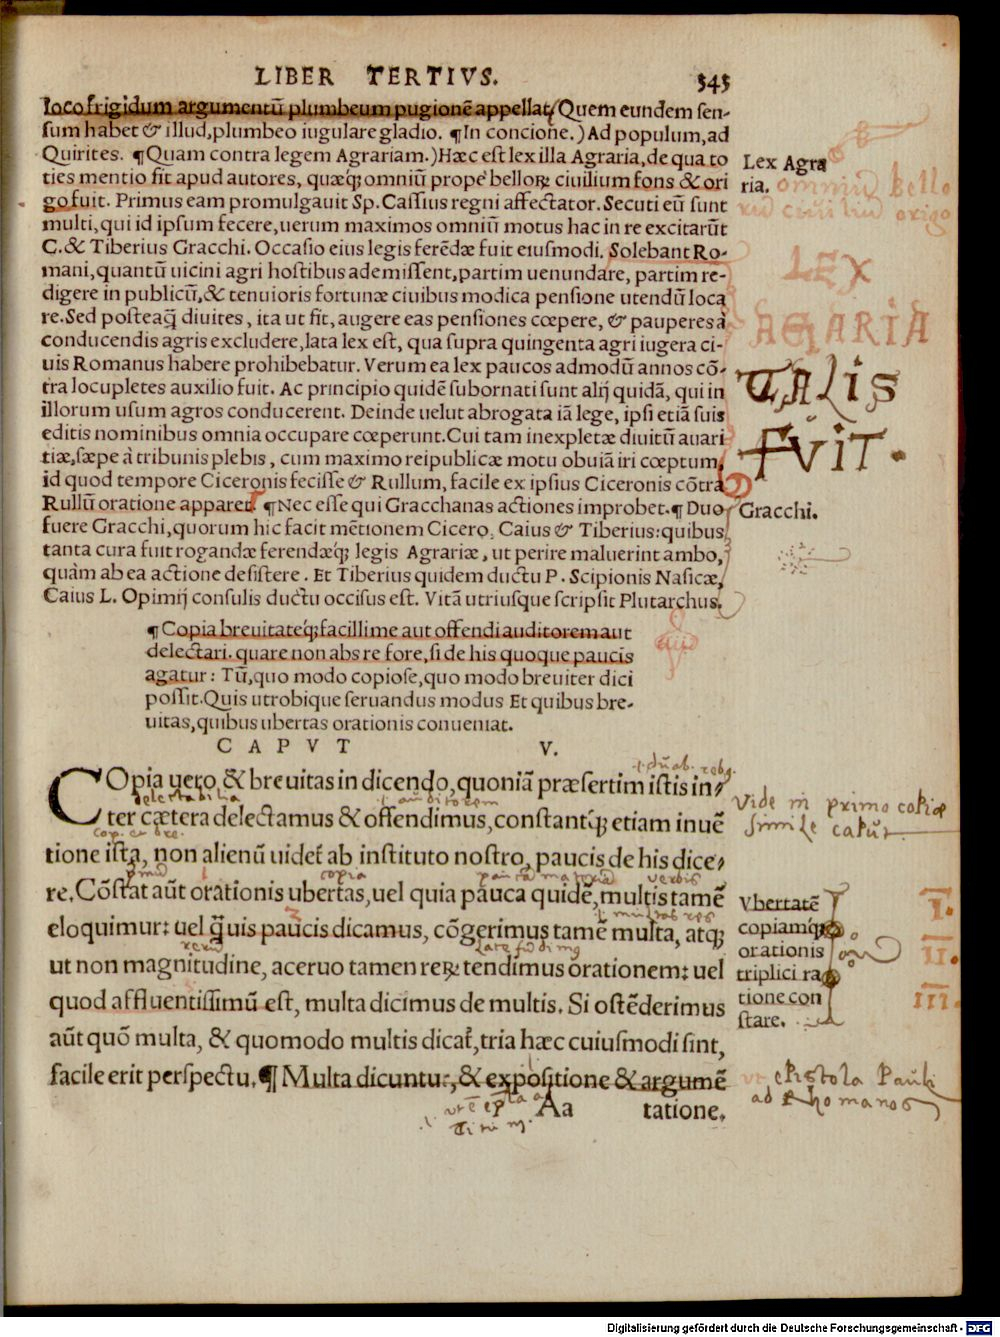 LIBER TERTIVS. 545
loco frigidum argumentū plumbeum pugionē appellat, Quem eundem sen-
sum habet & illud, plumbeo iugulare gladio. ¶In concione.) Ad populum, ad
Quirites. ¶Quam contra legem Agrariam.) Hæc est lex illa Agraria, de qua to
ties mentio fit apud autores, quæq; omniū propè belloꝝ ciuilium fons & ori
go fuit. Primus eam promulgauit Sp. Cassius regni affectator. Secuti eū sunt
multi, qui id ipsum fecere, uerum maximos omniū motus hac in re excitarūt
C. & Tiberius Gracchi. Occasio eius legis ferēdæ fuit eiusmodi. Solebant Ro-
mani, quantū uicini agri hostibus ademissent, partim uenundare, partim re-
digere in publicū, & tenuioris fortunæ ciuibus modica pensione utendū loca
re. Sed posteaq̃ diuites, ita ut fit, augere eas pensiones cœpere, & pauperes à
conducendis agris excludere, lata lex est, qua supra quingenta agri iugera ci-
uis Romanus habere prohibebatur. Verum ea lex paucos admodū annos cō-
tra locupletes auxilio fuit. Ac principio quidē subornati sunt alij quidā, qui in
illorum usum agros conducerent. Deinde uelut abrogata iā lege, ipsi etiā suis
editis nominibus omnia occupare cœperunt. Cui tam inexpletæ diuitū auari
tiæ, sæpe à tribunis plebis, cum maximo reipublicæ motu obuiā iri cœptum,
id quod tempore Ciceronis fecisse & Rullum, facile ex ipsius Ciceronis cōtra
Rullū oratione apparet. ¶Nec esse qui Gracchanas actiones improbet. ¶Duo
fuere Gracchi, quorum hic facit mētionem Cicero, Caius & Tiberius: quibus
tanta cura fuit rogandæ ferendæq; legis Agrariæ, ut perire maluerint ambo,
quàm ab ea actione desistere. Et Tiberius quidem ductu P. Scipionis Nasicæ,
Caius L. Opimij consulis ductu occisus est. Vitā utriusque scripsit Plutarchus.
Lex Agra
ria. omniū bello
rū ciuiliū origo
LEX
AGARIA
TALIS
FVIT.
Gracchi.
¶ Copia breuitateq́; facillime aut offendi auditorem aut
delectari. quare non abs re fore, si de his quoque paucis
agatur: Tū, quo modo copiose, quo modo breuiter dici
possit. Quis utrobique seruandus modus Et quibus bre-
uitas, quibus ubertas orationis conueniat.
CAPVT V.
COpia uero, & breuitas in dicendo, quoniā præsertim istis in-
ter cætera delectamus & offendimus, constantq́; etiam inuē
tione ista, non alienū uidet̃ ab instituto nostro, paucis de his dice-
re. Cōstat aūt orationis ubertas, uel quia pauca quidē, multis tamē
eloquimur: uel q̃uis paucis dicamus, cōgerimus tamē multa, atq;
ut non magnitudine, aceruo tamen reꝝ tendimus orationem: uel
quod affluentissimū est, multa dicimus de multis. Si ostēderimus
aūt quō multa, & quomodo multis dicat̃, tria hæc cuiusmodi sint,
facile erit perspectu. ¶ Multa dicuntur, & expositione & argumē
Aa tatione.
delectabilia
auditorem
copia
pauca materia
verbis
Vide in primo copiæ
simile caput
Vbertatē
copiamq́;
orationis
triplici ra
tione con
stare.
I.
II.
III.
ut epistola Pauli
ad Rhomanos
Digitalisierung gefördert durch die Deutsche Forschungsgemeinschaft - DFG